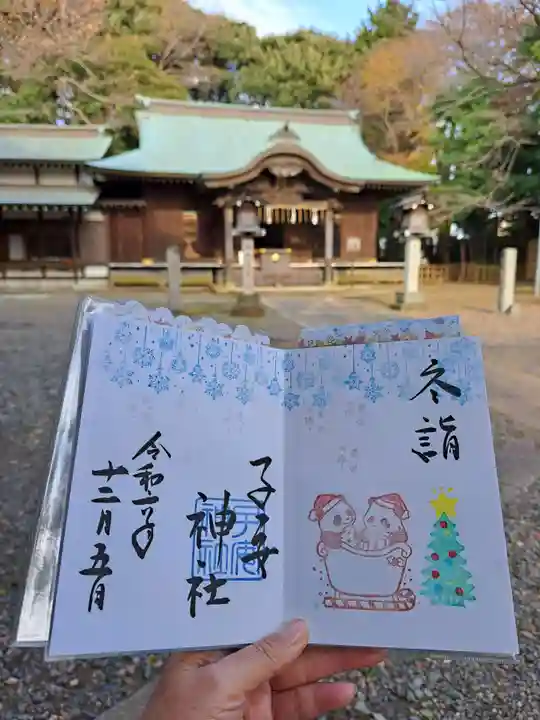 冬詣
子安
神社
令和
十二月五日